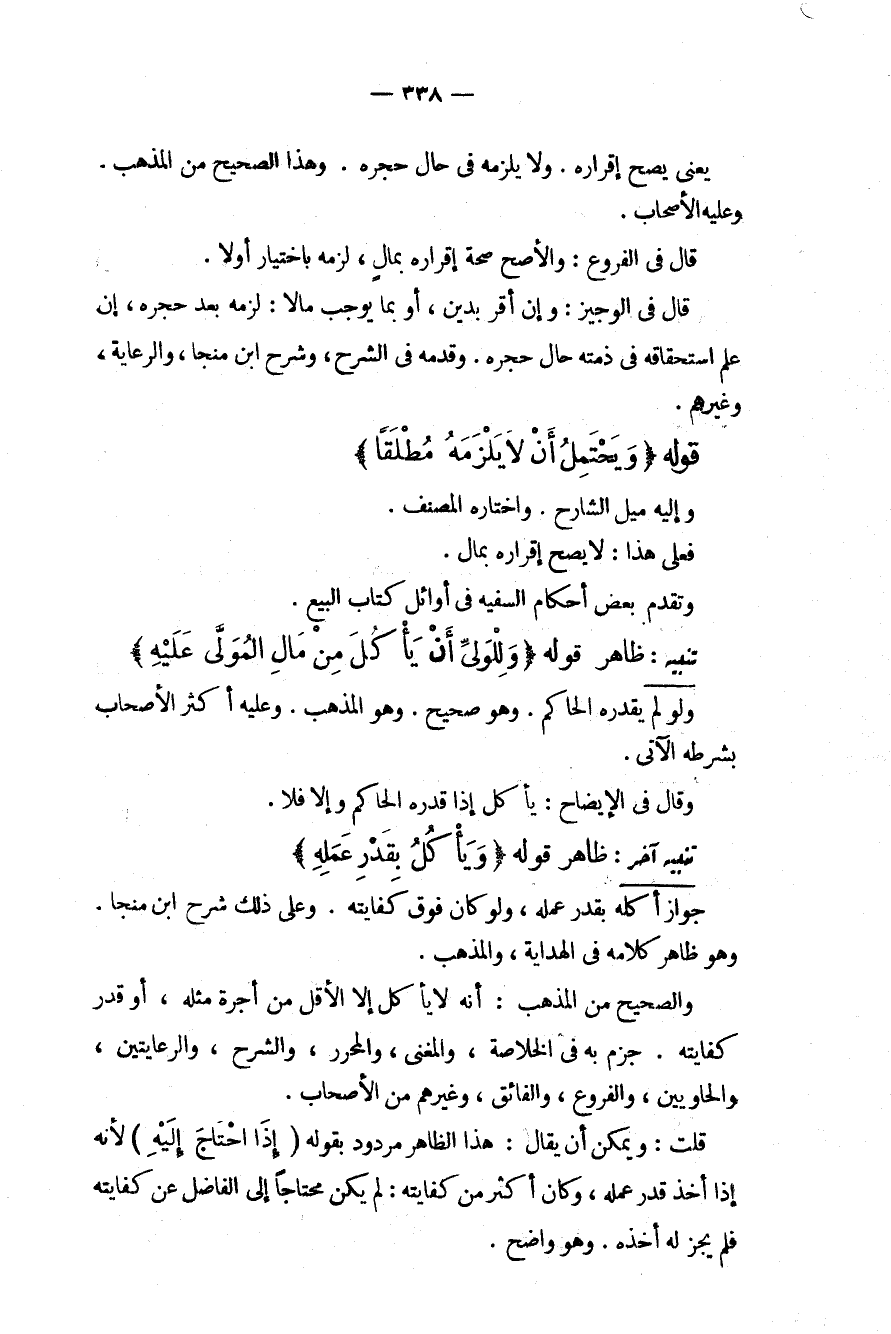 — ٣٣٨ —
يعنى يصح إقراره . ولا يلزمه فى حال حجره . وهذا الصحيح من المذهب .
وعليه الأصحاب .
قال فى الفروع : والأصح صحة إقراره بمالٍ ، لزمه باختيار أولا .
قال فى الوجيز : وإن أقر بدين ، أو بما يوجب مالا : لزمه بعد حجره ، إن
علم استحقاقه فى ذمته حال حجره . وقدمه فى الشرح ، وشرح ابن منجا ، والرعاية ،
وغيرهم .
قوله ﴿ وَيَحْتَمِلُ أَنْ لاَ يَلْزَمَهُ مُطْلَقًا ﴾
وإليه ميل الشارح . واختاره المصنف .
فعلى هذا : لا يصح إقراره بمال .
وتقدم بعض أحكام السفيه فى أوائل كتاب البيع .
تنبيه : ظاهر قوله ﴿ وَلِلْوَلِىِّ أَنْ يَأْكُلَ مِنْ مَالِ المُوَلَّى عَلَيْهِ ﴾
ولو لم يقدره الحاكم . وهو صحيح . وهو المذهب . وعليه أكثر الأصحاب
بشرطه الآتى .
وقال فى الإيضاح : يأكل إذا قدره الحاكم وإلا فلا .
تنبيه آخر : ظاهر قوله ﴿ وَيَأْكُلُ بِقَدْرِ عَمَلِهِ ﴾
جواز أكله بقدر عمله ، ولو كان فوق كفايته . وعلى ذلك شرح ابن منجا .
وهو ظاهر كلامه فى الهداية ، والمذهب .
والصحيح من المذهب : أنه لا يأكل إلا الأقل من أجرة مثله ، أو قدر
كفايته . جزم به فى الخلاصة ، والمغنى ، والمحرر ، والشرح ، والرعايتين ،
والحاويين ، والفروع ، والفائق ، وغيرهم من الأصحاب .
قلت : ويمكن أن يقال : هذا الظاهر مردود بقوله ( إِذَا احْتَاجَ إِلَيْهِ ) لأنه
إذا أخذ قدر عمله ، وكان أكثر من كفايته : لم يكن محتاجاً إلى الفاضل عن كفايته
فلم يجز له أخذه . وهو واضح .